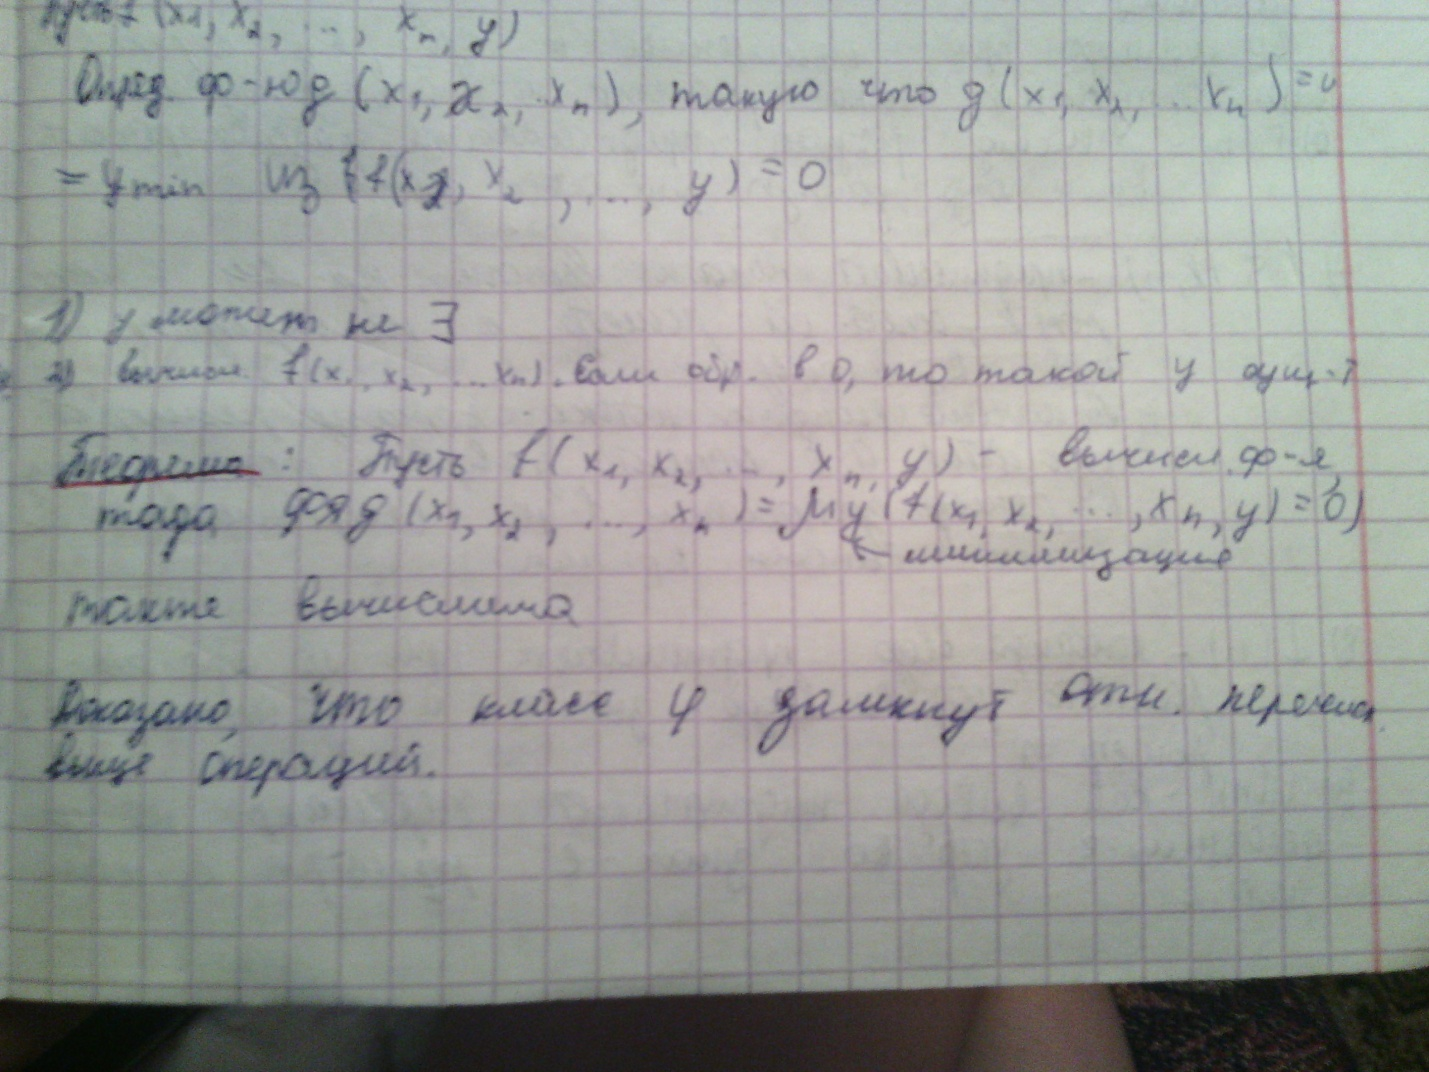 Пусть f (x1, x2, ..., xn, y)
Опред. ф-ю g (x1, x2, ..xn), такую что g (x1, x2, ... xn) =
= y min из f(x1, x2, ..., y) = 0
1) y может не ∃
2) вычисл. f(x1, x2, ... xn). Если обр. в 0, то такой y сущ-т
Теорема : Пусть f ( x1, x2, ..., xn, y) - вычисл. ф-я,
тогда ф-я g (x1, x2, ..., xn) = μy (f(x1, x2, ..., xn, y) = 0)
минимизация
также вычислима
Доказано, что класс φ замкнут отн. перечисл.
выше операций.